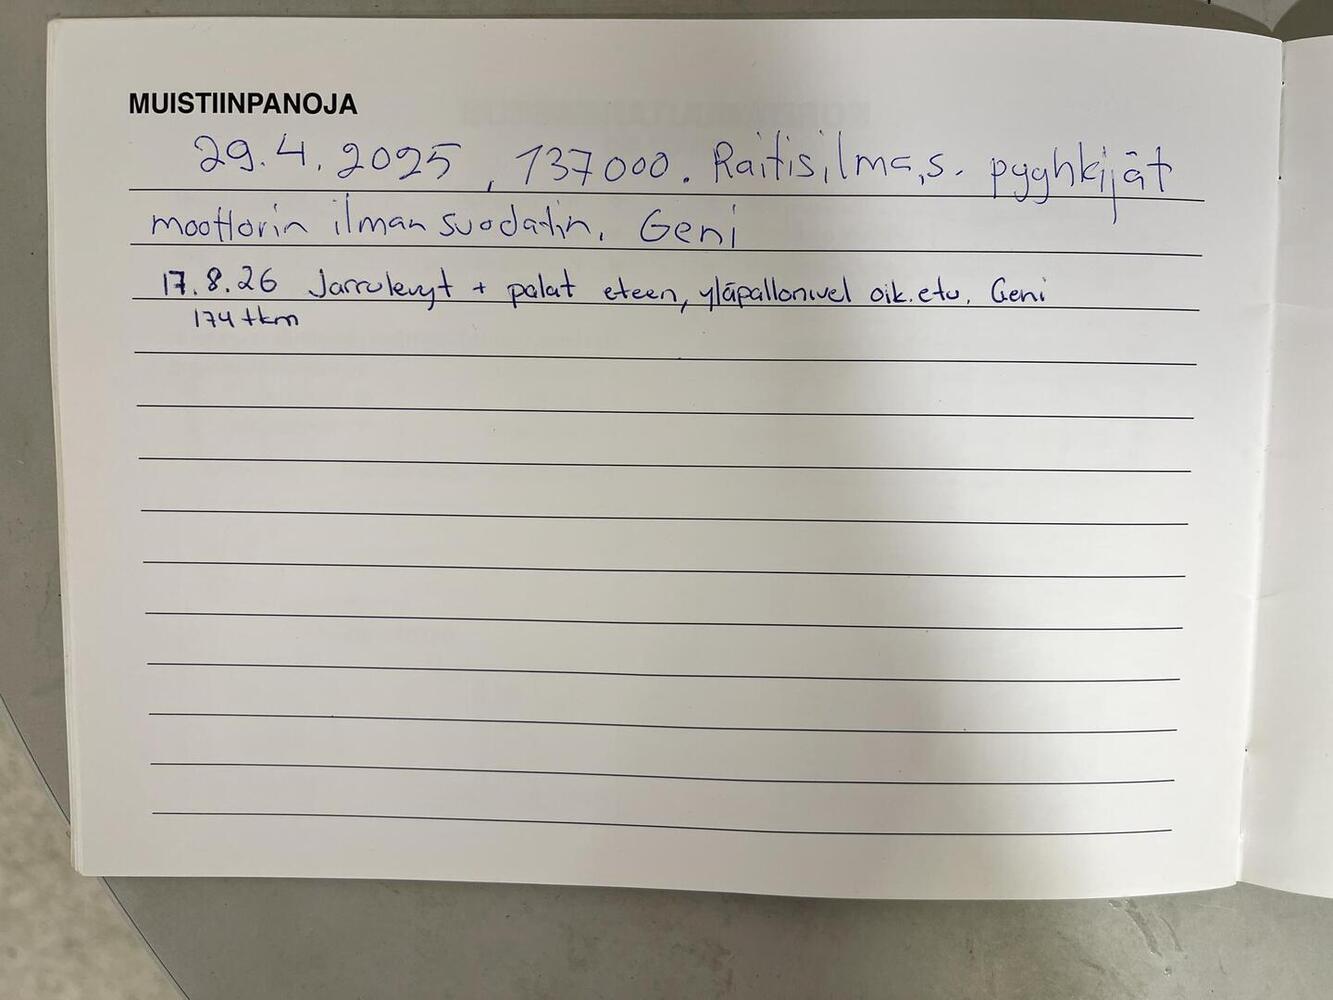 MUISTIINPANOJA
29.4.2025, 137000. Raitisilma.s. pyyhkijät
moottorin ilman suodatin. Geni
17.8.26 Jarrulevyt + palat eteen, yläpallonivel oik.etu. Geni
174tkm